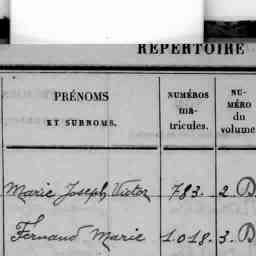 RÉPERTOIRE
PRÉNOMS
ET SURNOMS.
NUMÉROS
ma-
tricules.
NU-
MÉRO
du
volume
Marie Joseph Victor 783. 2. D
Fernand Marie 1018. 3. D